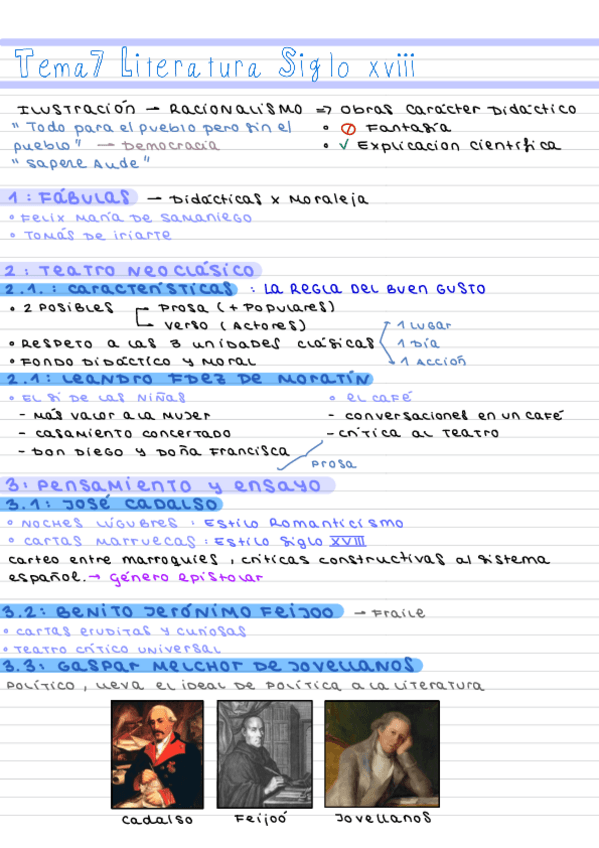 Tema7 Literatura Siglo xviii
Ilustración → Racionalismo => Obras carácter Didáctico
"Todo para el pueblo pero sin el • Fantasía
pueblo" → Democracia • √ Explicacion científica
"Sapere Aude"
1: Fábulas → Didácticas x Moraleja
• Felix María de Samaniego
• Tomás de Iriarte
2: Teatro Neoclásico
2.1.: Características : La regla del buen gusto
• 2 posibles Prosa (+ Populares)
Verso (Actores)
• Respeto a las 3 unidades clásicas 1 Lugar
1 Día
• Fondo didáctico y moral 1 Acción
2.1: Leandro Fdez de Moratín
• El sí de las niñas • El café
- Más valor a la mujer - Conversaciones en un café
- Casamiento concertado - Crítica al teatro
- Don Diego y Doña Francisca
Prosa
3: Pensamiento y ensayo
3.1: José Cadalso
• Noches lúgubres : Estilo Romanticismo
• Cartas marruecas : Estilo Siglo XVIII
carteo entre marroquíes, críticas constructivas al sistema
español. → Género epistolar
3.2: Benito Jerónimo Feijoo → Fraile
• Cartas eruditas y curiosas
• Teatro crítico universal
3.3: Gaspar Melchor de Jovellanos
Político, lleva el ideal de política a la literatura
Cadalso Feijoó Jovellanos